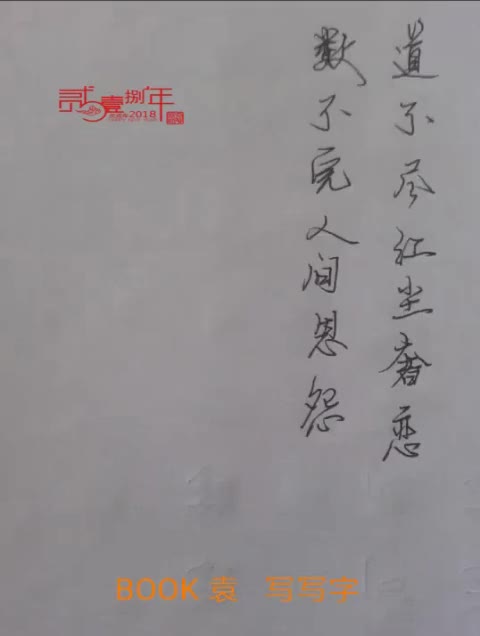 道不尽红尘奢恋
数不完人间恩怨
贰壹捌年
2018
BOOK 袁 写写字